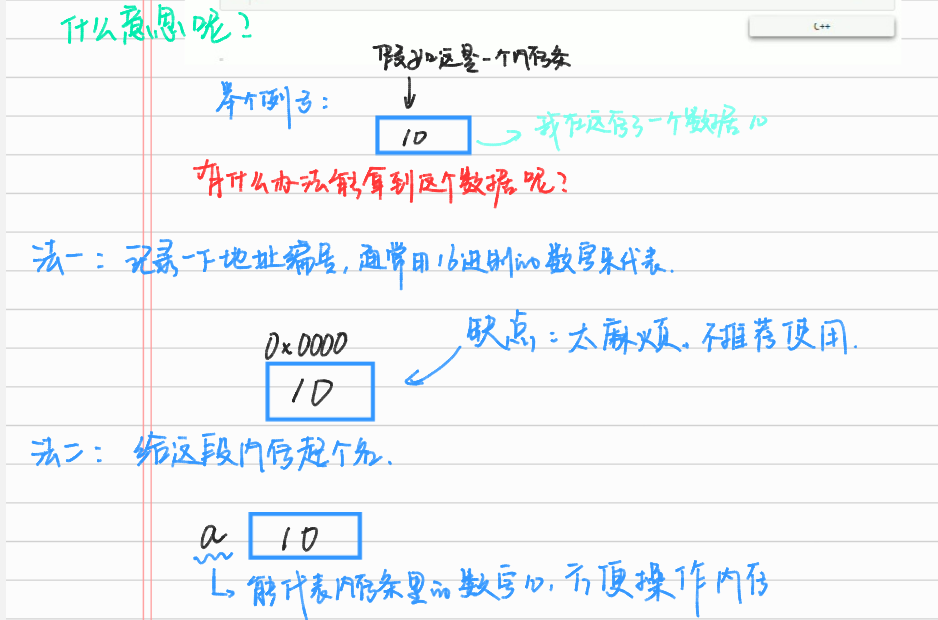 什么意思呢?
C++
假如这是一个内存条
举个例子:
10
我在这存了一个数据10
有什么办法能拿到这个数据呢?
法一: 记录一下地址编号,通常用16进制的数字来代表.
缺点:太麻烦。不推荐使用.
0x0000
10
法二: 给这段内存起个名.
a
10
能代表内存条里的数字10,方便操作内存